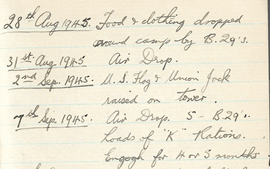 28th Aug 1945. Food & clothing dropped
around camp by B.29's.
31st Aug. 1945 Air Drop.
2nd Sep. 1945. U.S. Flag & Union Jack
raised on tower.
7th Sep. 1945. Air Drop. 5 - B29's.
Loads of "K" Rations.
Enough for 4 or 5 months